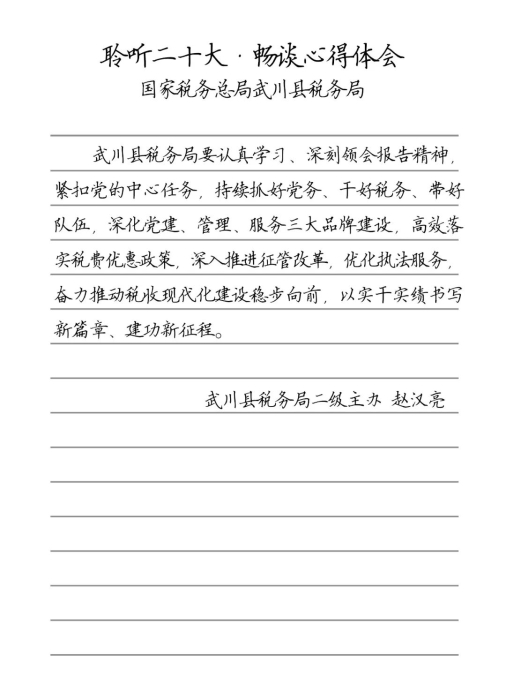 聆听二十大·畅谈心得体会
国家税务总局武川县税务局
武川县税务局要认真学习、深刻领会报告精神，
紧扣党的中心任务，持续抓好党务、干好税务、带好
队伍，深化党建、管理、服务三大品牌建设，高效落
实税费优惠政策，深入推进征管改革，优化执法服务，
奋力推动税收现代化建设稳步向前，以实干实绩书写
新篇章、建功新征程。
武川县税务局二级主办 赵汉亮